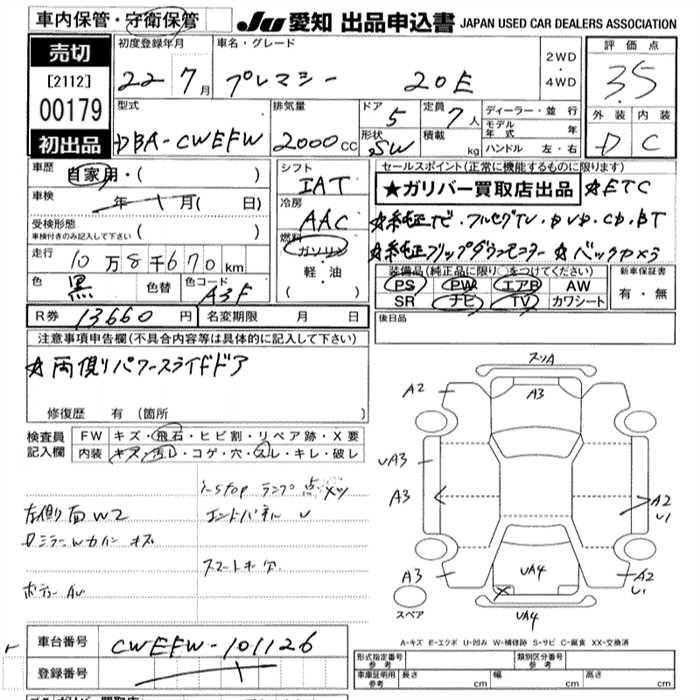 車内保管・守衛保管
JU 愛知 出品申込書 JAPAN USED CAR DEALERS ASSOCIATION
売切
[2112]
00179
初出品
初度登録年月 車名・グレード 2WD・4WD
22 7月 プレマシー 20E
評価点
3.5
外装 内装
D C
型式 排気量 ドア 定員
DBA-CWEFW 2000cc 5 7人
形状 積載
SW kg
ディーラー・並行
モデル年式 年
ハンドル 左・右
車歴 自家用・( )
車検 年 月( 日)
受検形態
車検付きのみ記入して下さい ( )
走行 10万8千670km
色 黒 色替 色コード A3F
シフト IAT
冷房 AAC
燃料 ガソリン
軽・油
・( )
セールスポイント(正常に機能するものに限ります)
★ガリバー買取店出品 ☆ETC
☆純正ナビ・フルセグTV・DVD・CD・BT
☆純正フリップダウンモニター ☆バックカメラ
装備品(純正品に限り○をつけてください)
PS PW エアB AW
SR ナビ TV カワシート
新車保証書
有・無
後日品
R券 13660円 名変期限 月 日
注意事項申告欄(不具合内容等は具体的に記入して下さい)
☆両側パワースライドドア
修復歴 有(箇所
検査員記入欄 FW キズ・飛石・ヒビ割・リペア跡・X要
内装 キズ・汚レ・コゲ・穴・スレ・キレ・破レ
i-stop ランプ点メツ
左側面 W2 エンドパネル U
Dミラー ウィンカー キズ
スマートキー欠
ボデー AU
スリA
A2 A3
UA3
A3 A2
U1
A3 UA4 A2
U1
スペア UA4
A-キズ E-エクボ U-凹み W-補修跡 S-サビ C-腐食 XX-交換済
車台番号 CWEFW-101126
登録番号
形式指定番号 参考 類別区分番号 参考
車庫証明用 参考 長さ cm 幅 cm 高さ cm